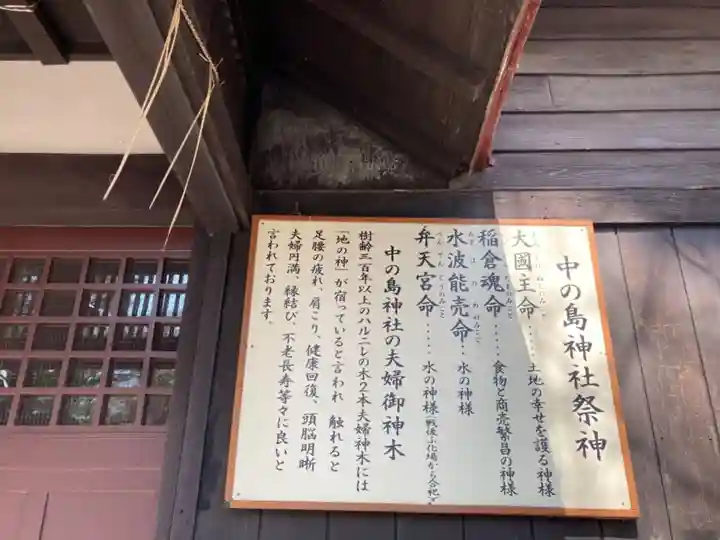 中の島神社祭神
大國主命‥‥‥土地の幸せを護る神様
稲倉魂命‥‥‥食物と商売繁昌の神様
水波能売命‥‥水の神様
弁天宮命‥‥‥水の神様 戦後ふ化場から合祀
中の島神社の夫婦御神木
樹齢三百年以上のハルニレの木2本夫婦神木には
「地の神」が宿っていると言われ 触れると
足腰の疲れ、肩こり、健康回復、頭脳明晰
夫婦円満、縁結び、不老長寿等々に良いと
言われております。